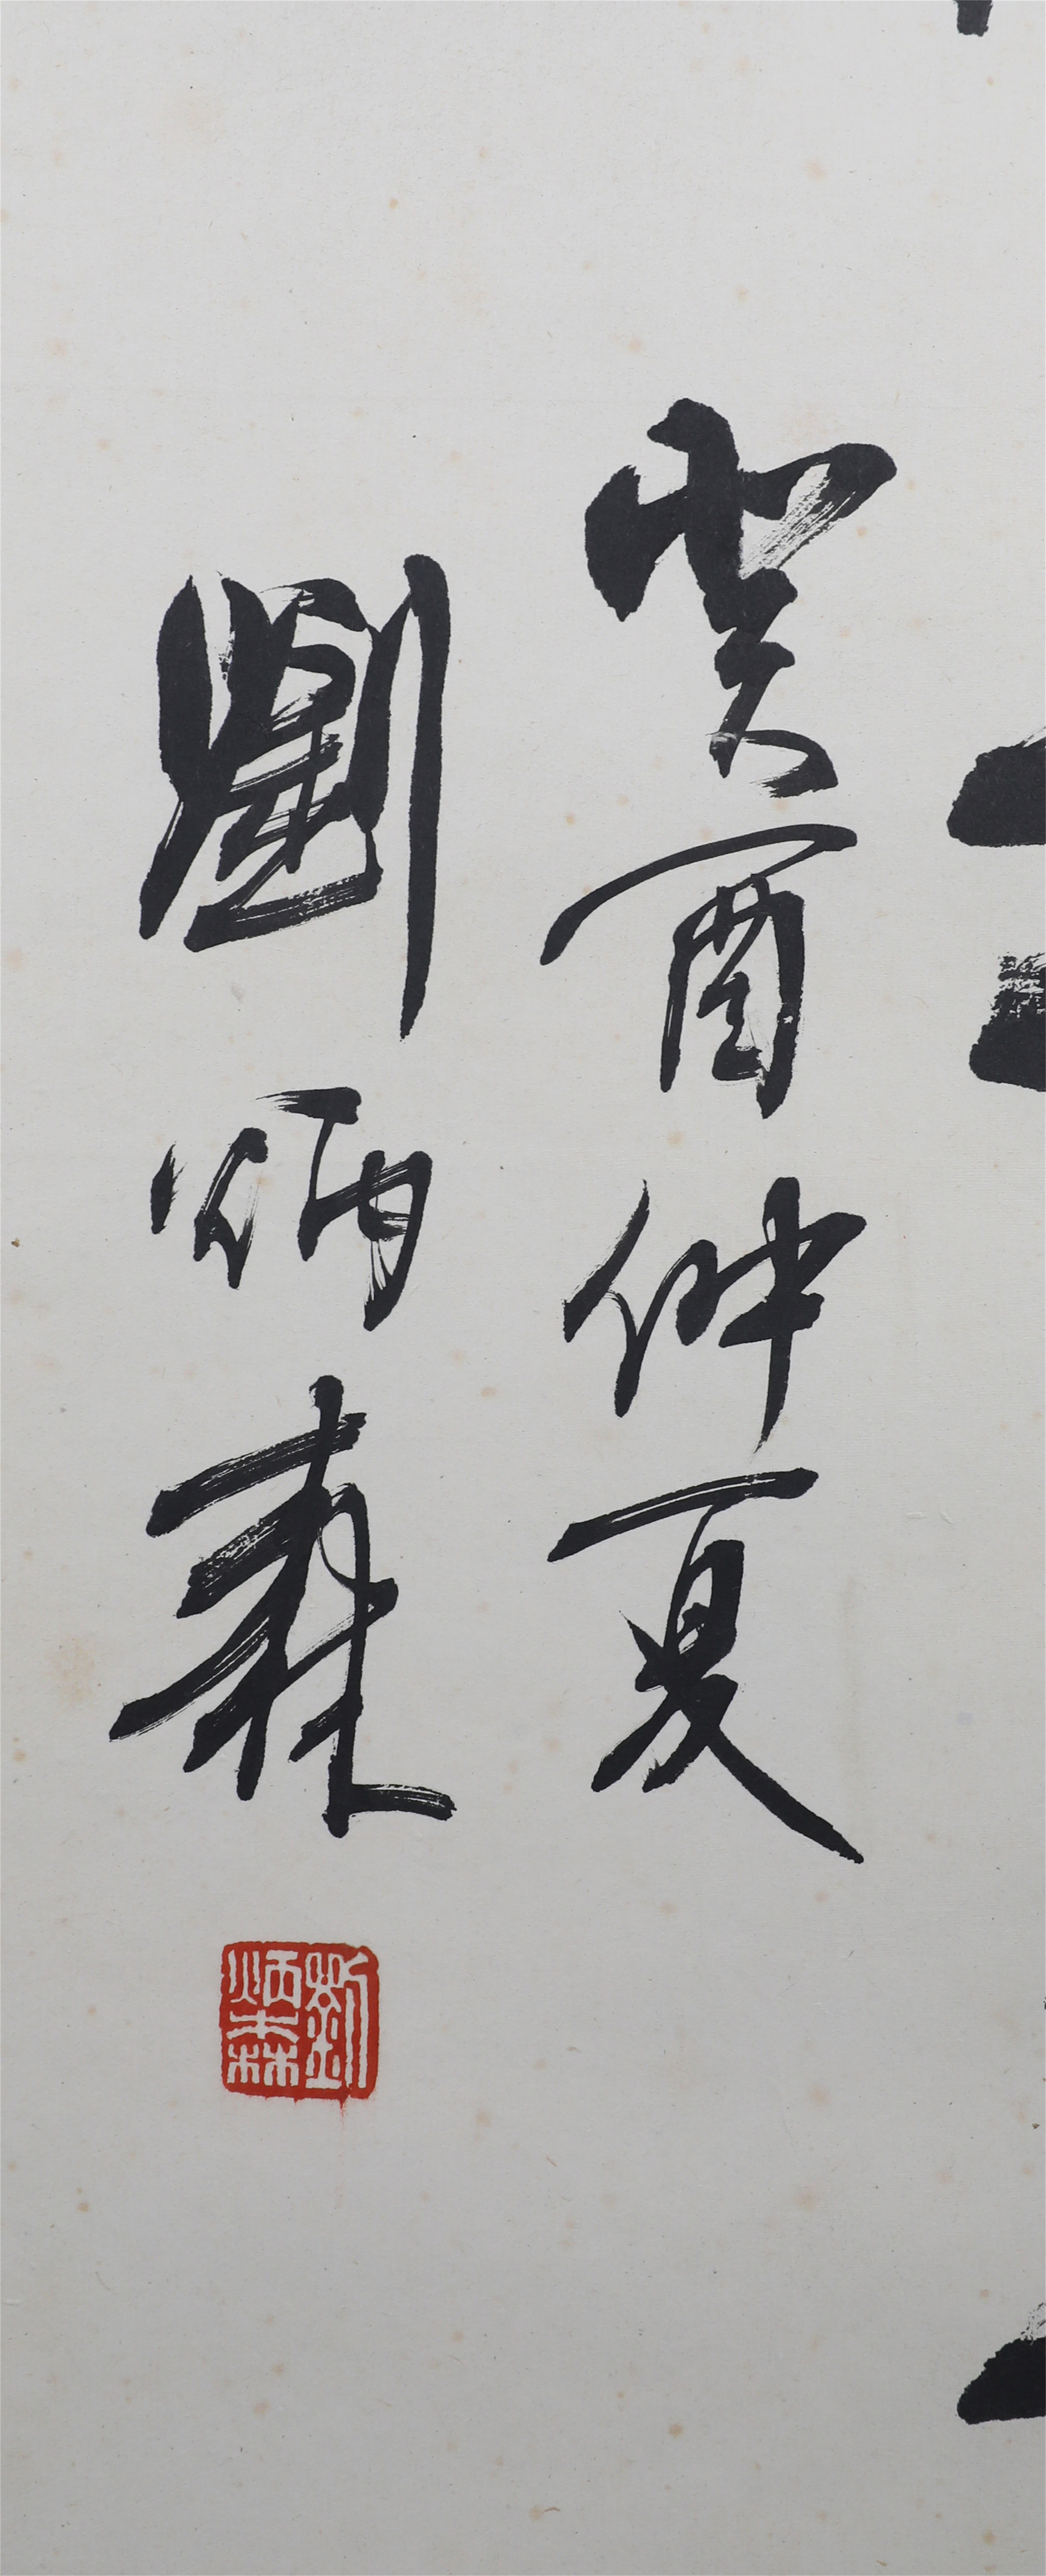 癸酉仲夏
劉炳森
劉炳森